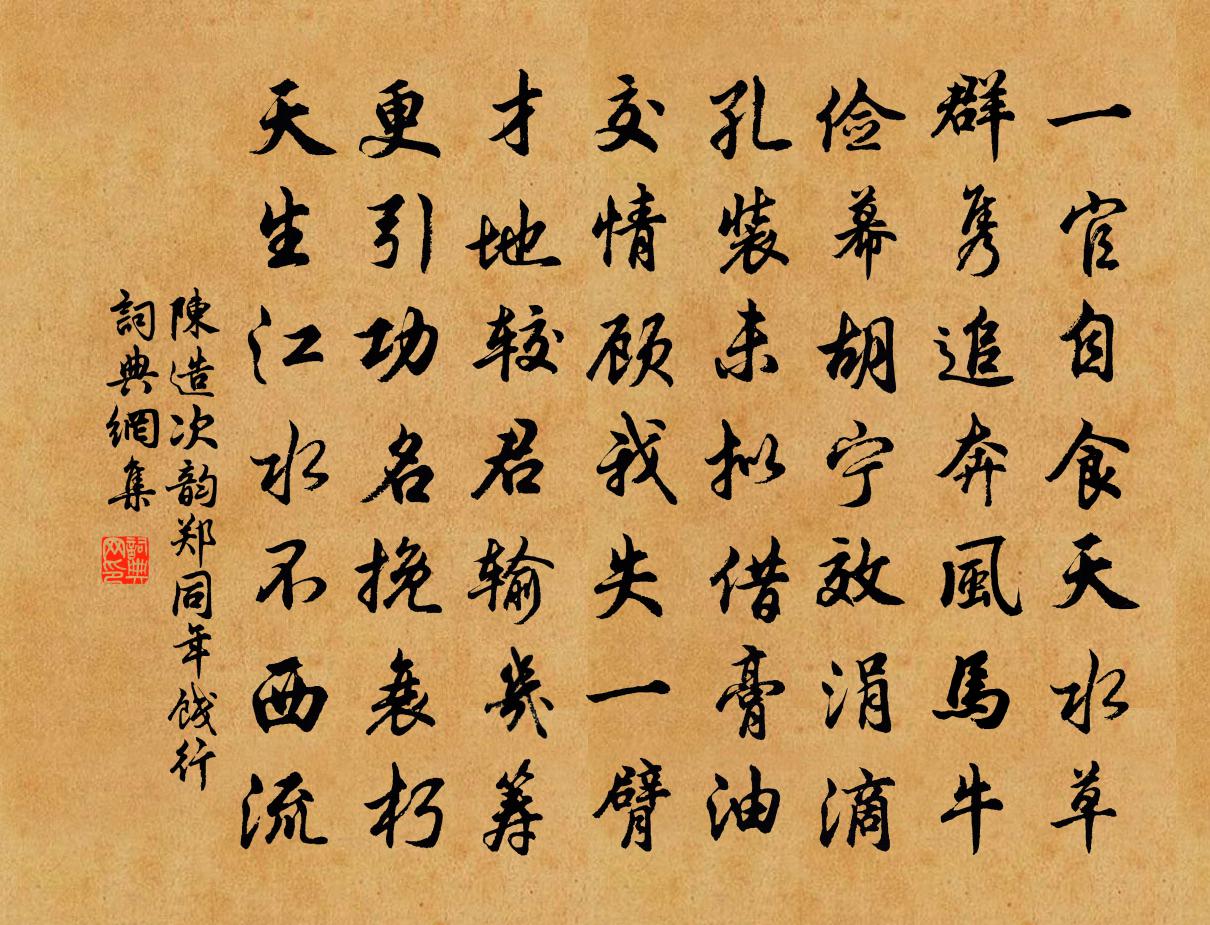 一官自食天水草
群隽追奔風馬牛
俭幕胡宁效涓滴
孔装未拟借膏油
交情顾我失一臂
才地较君输幾筹
更引功名挽衰朽
天生江水不西流
陳造次韵郑同年餞行
詞典網集
詞典网印